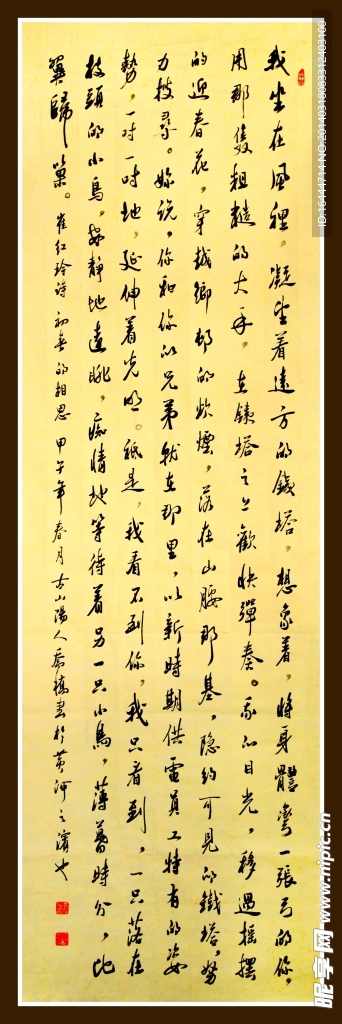 我坐在風裡，凝望着遠方的鐵塔，想象着，將身體彎一張弓的你，
用那雙粗糙的大手，在鐵塔之上歡快彈奏。我的目光，移過搖擺
的迎春花，穿越鄉邨的炊煙，落在山腰那基，隐約可見的鐵塔，努
力找尋。妳説，你和你的兄弟就在那里，以新時期供電員工特有的姿
勢，一吋一吋地，延伸着光明。祗是，我看不到你，我只看到，一只落在
枝頭的小鳥，安靜地遠眺，痴情地等待着另一只小鳥，薄暮時分，比
翼歸巢。崔红玲詩 初春的相思 甲午年春月古山陽人 書於黄河之濱也
ID:16441714 NO:20140318083312403100
昵享网 www.nipic.cn